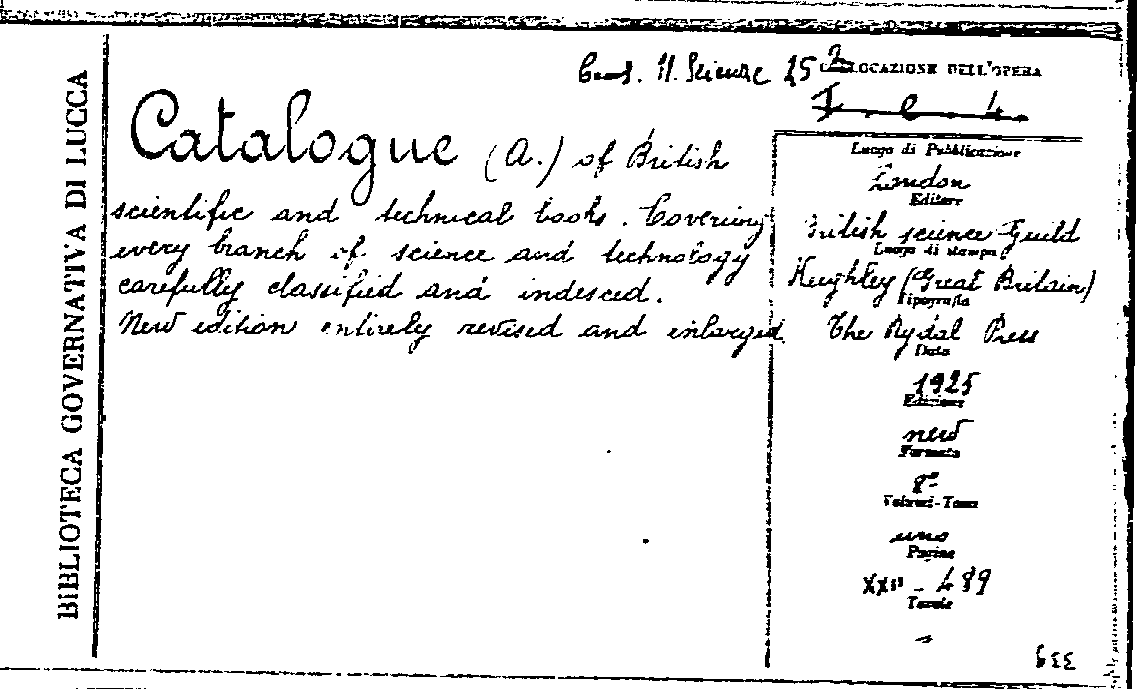 BIBLIOTECA GOVERNATIVA DI LUCCA
25 2
COLLOCAZIONE DELL'OPERA
Catalogue (A.) of British
scientific and technical books. Covering
every branch of science and technology
carefully classified and indexed.
New edition entirely revised and enlarged.
Luogo di Pubblicazione
London
Editore
British science Guild
Luogo di stampa
Keighley (Great Britain)
Tipografia
The Rydal Press
Data
1925
Edizione
new
Formato
8°
Volumi-Tomi
uno
Pagine
489
Tavole